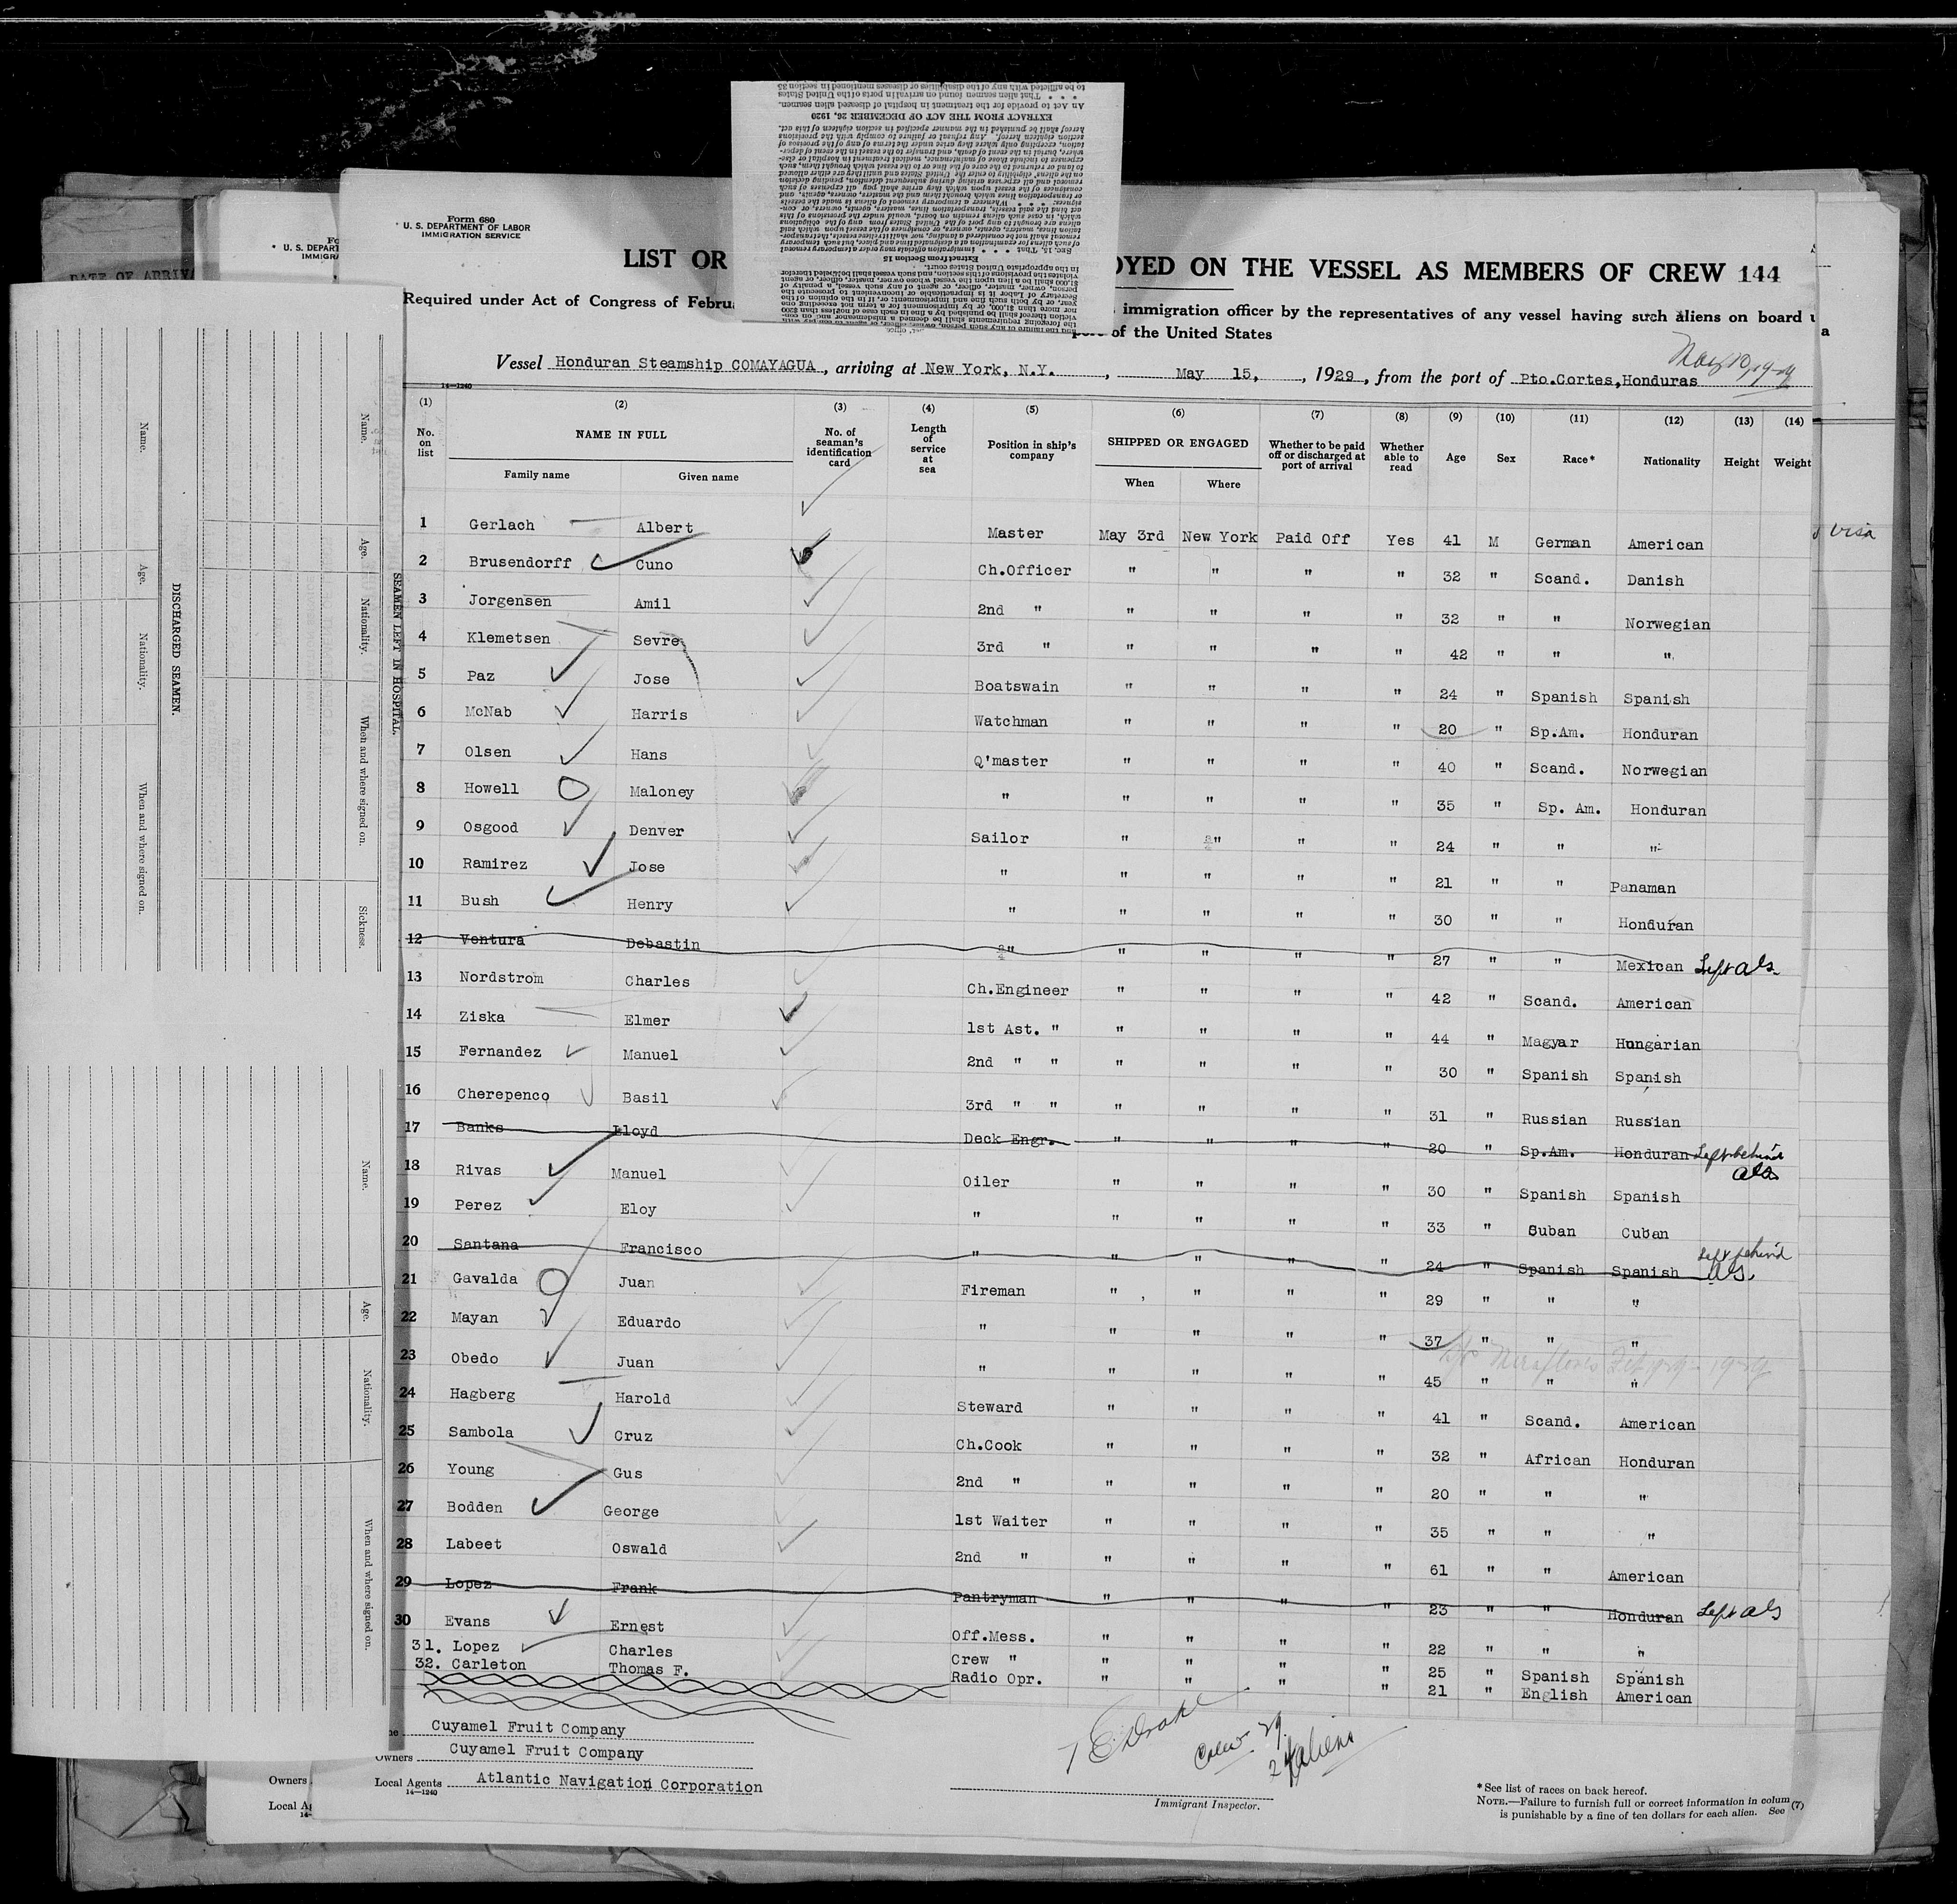 Form 680
U. S. DEPARTMENT OF LABOR
IMMIGRATION SERVICE
LIST OR OYED ON THE VESSEL AS MEMBERS OF CREW 144
Required under Act of Congress of Februa immigration officer by the representatives of any vessel having such aliens on board
of the United States
May 10, 1929
Vessel Honduran Steamship COMAYAGUA, arriving at New York, N.Y., May 15, 1929, from the port of Pto.Cortes,Honduras
14—1240
(1) (2) (3) (4) (5) (6) (7) (8) (9) (10) (11) (12) (13) (14)
No. on list NAME IN FULL No. of seaman's identification card Length of service at sea Position in ship's company SHIPPED OR ENGAGED Whether to be paid off or discharged at port of arrival Whether able to read Age Sex Race* Nationality Height Weight
Family name Given name When Where
1 Gerlach Albert Master May 3rd New York Paid Off Yes 41 M German American
2 Brusendorff Cuno Ch.Officer " " " " 32 " Scand. Danish
3 Jorgensen Amil 2nd " " " " " 32 " " Norwegian
4 Klemetsen Sevre 3rd " " " " " 42 " " "
5 Paz Jose Boatswain " " " " 24 " Spanish Spanish
6 McNab Harris Watchman " " " " 20 " Sp.Am. Honduran
7 Olsen Hans Q'master " " " " 40 " Scand. Norwegian
8 Howell Maloney " " " " " 35 " Sp. Am. Honduran
9 Osgood Denver Sailor " " " " 24 " " "
10 Ramirez Jose " " " " " 21 " " Panaman
11 Bush Henry " " " " " 30 " " Honduran
12 Ventura Debastin " " " " " 27 " " Mexican Left als
13 Nordstrom Charles Ch.Engineer " " " " 42 " Scand. American
14 Ziska Elmer 1st Ast. " " " " " 44 " Magyar Hungarian
15 Fernandez Manuel 2nd " " " " " " 30 " Spanish Spanish
16 Cherepenco Basil 3rd " " " " " " 31 " Russian Russian
17 Banks Lloyd Deck Engr. " " " " 20 " Sp.Am. Honduran Left behind
als
18 Rivas Manuel Oiler " " " " 30 " Spanish Spanish
19 Perez Eloy " " " " " 33 " Cuban Cuban
20 Santana Francisco " " " " " 24 " Spanish Spanish Left behind als.
21 Gavalda Juan Fireman " " " " 29 " " "
22 Mayan Eduardo " " " " " 37 " " "
23 Obedo Juan " " " " " 45 " " "
24 Hagberg Harold Steward " " " " 41 " Scand. American
25 Sambola Cruz Ch.Cook " " " " 32 " African Honduran
26 Young Gus 2nd " " " " " 20 " " "
27 Bodden George 1st Waiter " " " " 35 " " "
28 Labeet Oswald 2nd " " " " " 61 " " American
29 Lopez Frank Pantryman " " " " 23 " " Honduran Left als
30 Evans Ernest Off.Mess. " " " " 22 " " "
31. Lopez Charles Crew " " " " " 25 " Spanish Spanish
32. Carleton Thomas F. Radio Opr. " " " " 21 " English American
Cuyamel Fruit Company
Owners Cuyamel Fruit Company
Local Agents Atlantic Navigation Corporation
14—1240
Crew 29.
24 aliens
Immigrant Inspector.
*See list of races on back hereof.
NOTE.—Failure to furnish full or correct information in colum (7)
is punishable by a fine of ten dollars for each alien. See
visa
DATE OF ARRIVA
U. S. DEPART
IMMIGRA
Owners
Local Ag
DISCHARGED SEAMEN.
Name. Age. Nationality. When and where signed on.
SEAMEN LEFT IN HOSPITAL.
Name. Age. Nationality. When and where signed on. Sickness.
Name. Age. Nationality. When and where signed on.
Extract from Section 15
EXTRACT FROM THE ACT OF DECEMBER 26, 1920
An Act to provide for the treatment in hospital of diseased alien seamen.
That alien seamen found on arrival in ports of the United States
to be afflicted with any of the disabilities or diseases mentioned in section 35